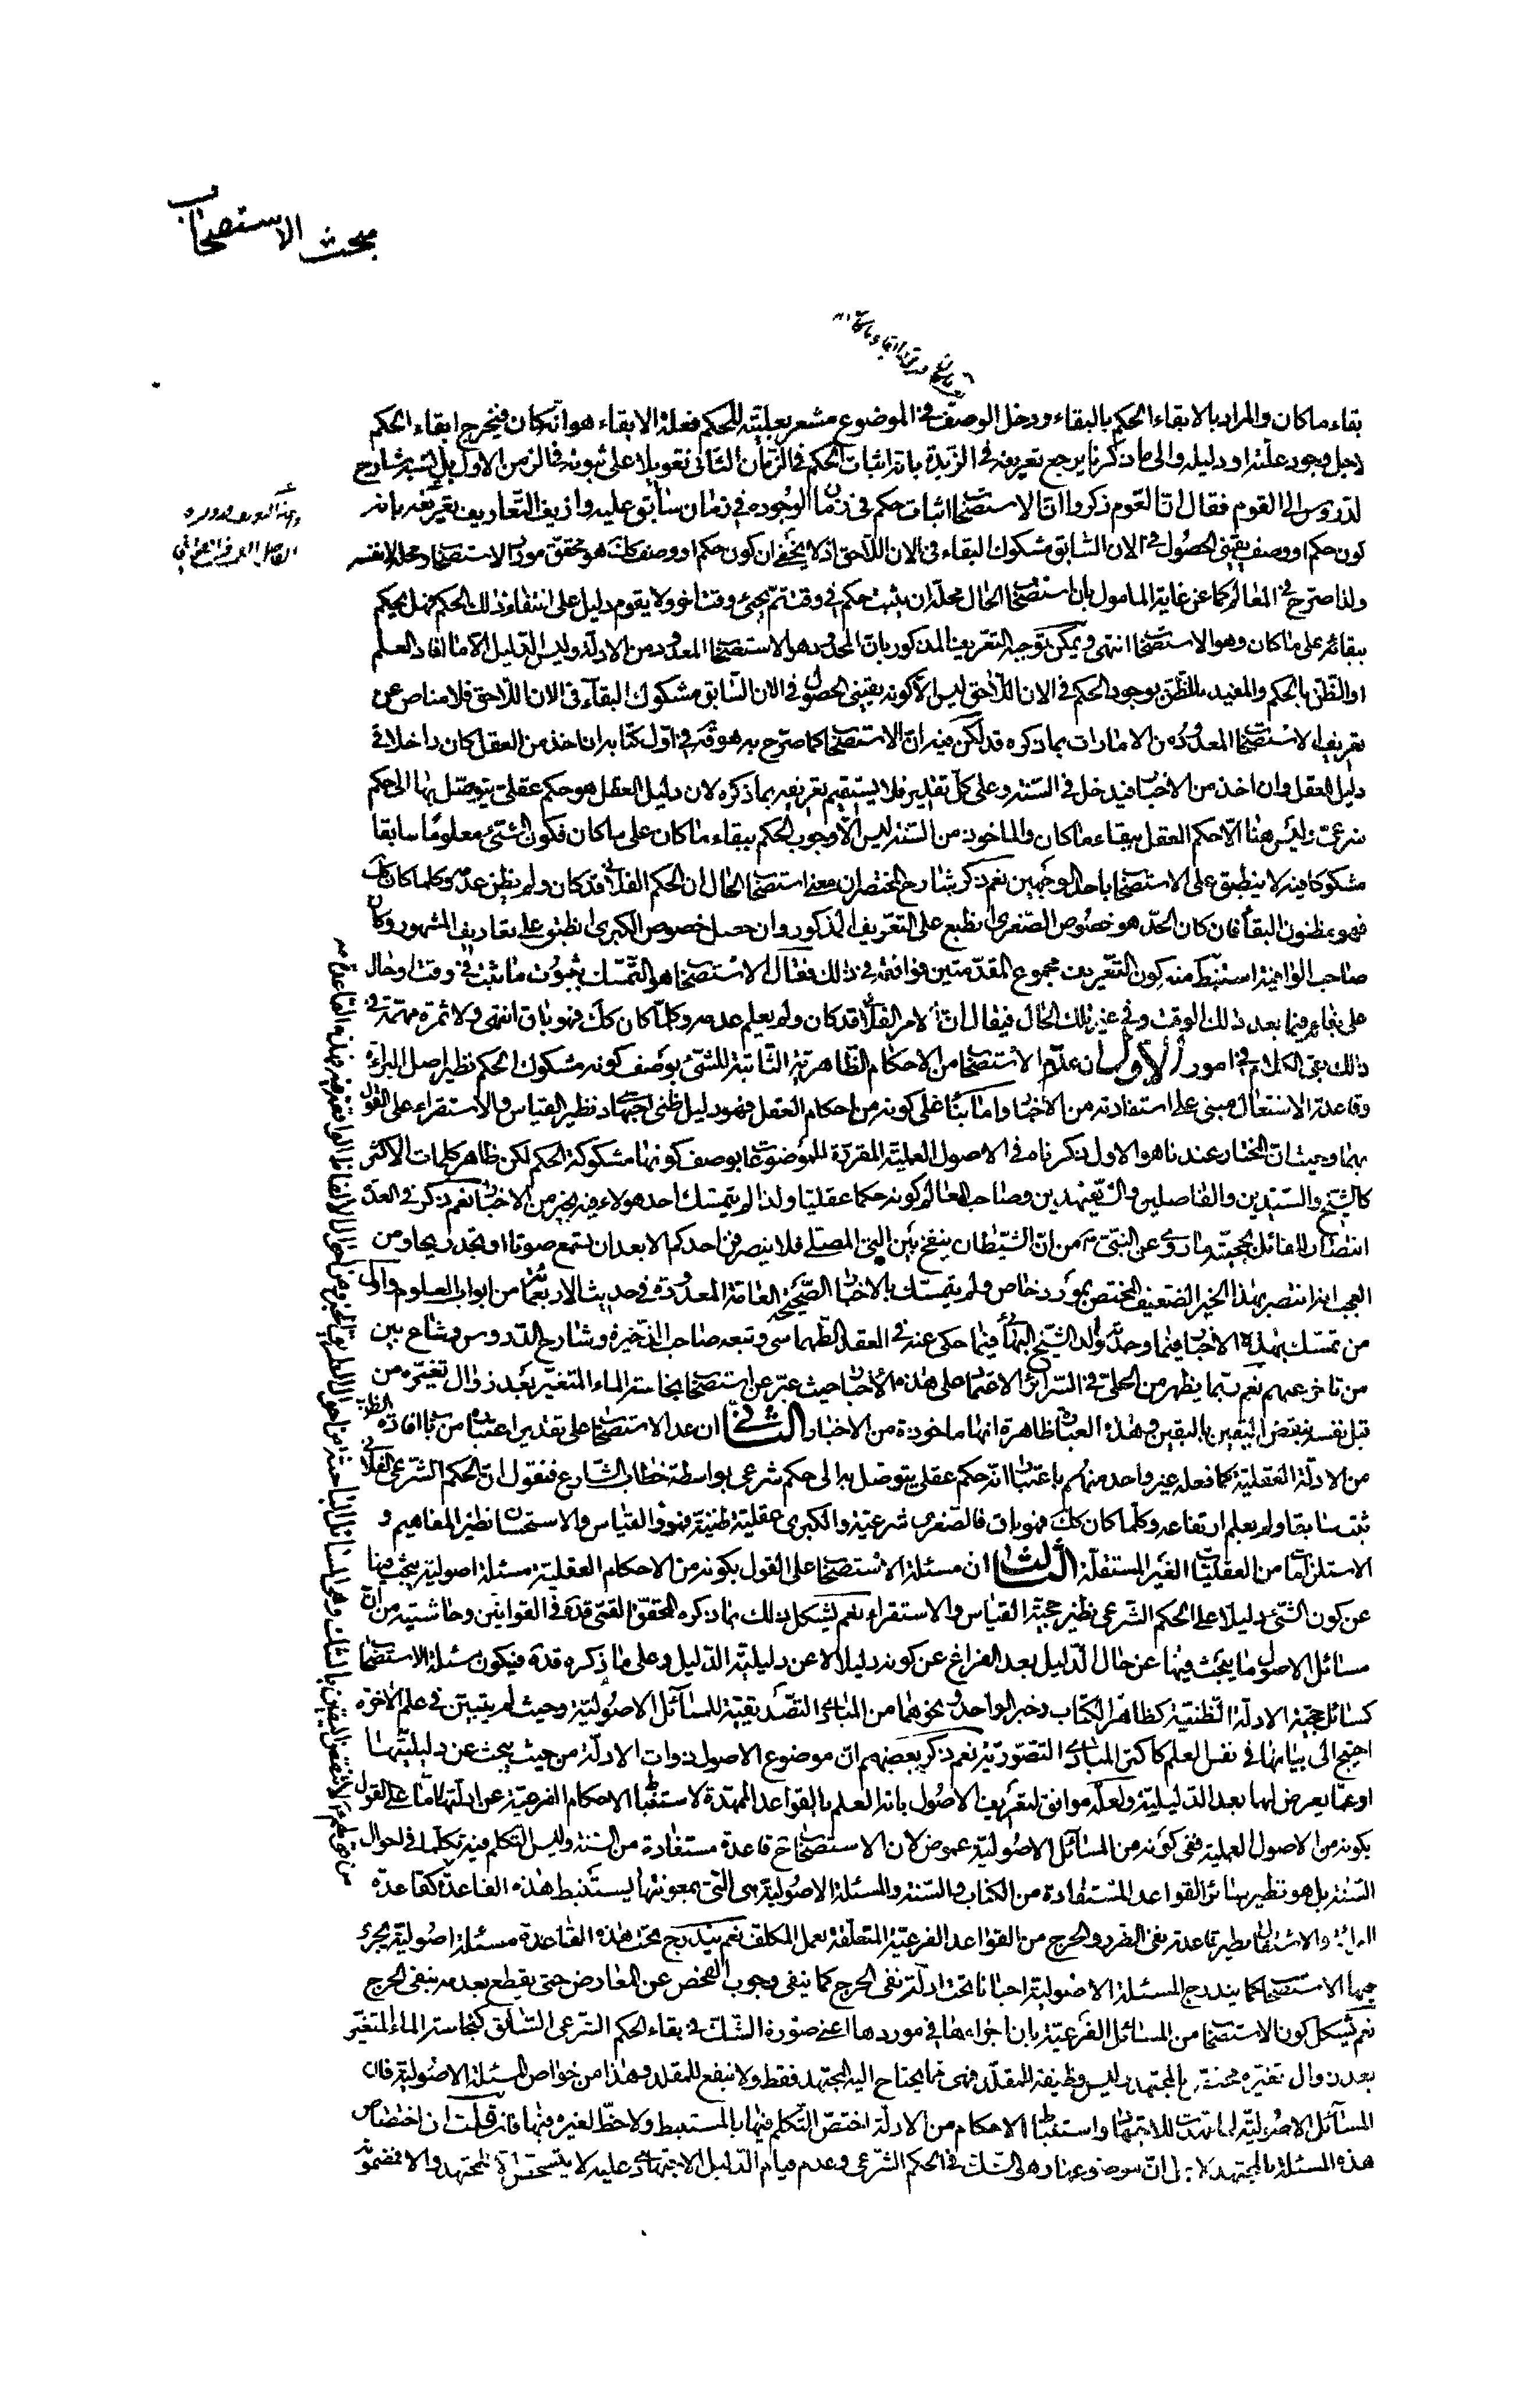 مبحث الاستصحاب
بقاء ما كان والمراد بالابقاء الحكم بالبقاء ودخل الوصف في الموضوع مشعر بعليته للحكم فعلة الابقاء هو انه كان فيخرج ابقاء الحكم
لاجل وجود علته او دليله والى ما ذكرنا يرجع تعريفه في الزبدة بانه اثبات الحكم في الزمان الثاني تعويلا على ثبوته في الزمن الاول بل نسبه شارح
الدروس الى القوم فقال ان القوم ذكروا ان الاستصحاب اثبات حكم في زمان لوجوده في زمان سابق عليه وازيف التعاريف تعريفه بانه
كون حكم او وصف يقيني الحصول في الان السابق مشكوك البقاء في الان اللاحق اذ لا يخفى ان كون حكم او وصف كك هو محقق مورد الاستصحاب ومحله لا نفسه
ولذا صرح في المعالم كما عن غاية المامول بان استصحاب الحال محله ان يثبت حكم في وقت ثم يجئ وقت اخر ولا يقوم دليل على انتفاء ذلك الحكم فهل يحكم
ببقائه على ما كان وهو الاستصحاب انتهى ويمكن توجيه التعريف المذكور بان المحدود هو الاستصحاب المعدود من الادلة وليس الدليل الا ما افاد العلم
او الظن بالحكم والمفيد للظن بوجود الحكم في الان اللاحق ليس الا كونه يقيني الحصول في الان السابق مشكوك البقاء في الان اللاحق فلا مناص عن
تعريف الاستصحاب المعدود من الامارات بما ذكره قده لكن فيه ان الاستصحاب كما صرح به هو قده في اول كتابه ان اخذ من العقل كان داخلا في
دليل العقل وان اخذ من الاخبار فيدخل في السنة وعلى كل تقدير فلا يستقيم تعريفه بما ذكره لان دليل العقل هو حكم عقلي يتوصل بها الى حكم
شرعي وليس هنا الا حكم العقل ببقاء ما كان والماخوذ من السنة ليس الا وجوب الحكم ببقاء ما كان على ما كان فكون الشئ معلوما سابقا
مشكوكا فيه لا ينطبق على الاستصحاب باحد الوجهين نعم ذكر شارح المختصر ان معنى استصحاب الحال ان الحكم الفلاني قد كان ولم يظن عدمه وكلما كان كك
فهو مظنون البقاء فان كان الحد هو خصوص الصغرى انطبع على التعريف المذكور وان جعل خصوص الكبرى انطبق على تعاريف المشهور وكان
صاحب الوافية استنبط منه كون التعريف مجموع المقدمتين فوافقه في ذلك فقال الاستصحاب هو التمسك بثبوت ما ثبت في وقت او حال
على بقائه فيما بعد ذلك الوقت وفي غير تلك الحال فيقال ان الامر الفلاني قد كان ولم يعلم عدمه وكلما كان كك فهو باق انتهى ولا ثمرة مهمة في
ذلك بقي الكلام في امور الاول ان عد الاستصحاب من الاحكام الظاهرية الثابتة للشئ بوصف كونه مشكوك الحكم نظير اصل البرائة
وقاعدة الاشتغال مبني على استفادته من الاخبار واما بناء على كونه من احكام العقل فهو دليل ظني اجتهادي نظير القياس والاستقراء على القول
بهما وحيث ان المختار عندنا هو الاول ذكرناه في الاصول العملية المقررة للموضوعات بوصف كونها مشكوكة الحكم لكن ظاهر كلمات الاكثر
كالشيخ والسيدين والفاضلين والشهيدين وصاحب المعالم كونه حكما عقليا ولذا لم يتمسك احد هولاء فيه بخبر من الاخبار نعم ذكر في العدة
انتصارا للقائل بحجيته ما روي عن النبي ص من ان الشيطان ينفخ بين اليتي المصلي فلا ينصرفن احدكم الا بعد ان يسمع صوتا او يجد ريحا ومن
العجب انه انتصر بهذا الخبر الضعيف المختص بمورد خاص ولم يتمسك بالاخبار الصحيحة العامة المعدودة في حديث الاربعمائة من ابواب العلوم واول
من تمسك بهذه الاخبار فيما وجدته والد الشيخ البهائي فيما حكى عنه في العقد الطهماسبي وتبعه صاحب الذخيرة وشارح الدروس وشاع بين
من تاخر عنهم نعم ربما يظهر من الحلي في السرائر الاعتماد على هذه الاخبار حيث عبر عن استصحاب نجاسة الماء المتغير بعد زوال تغيره من
قبل نفسه بنقض اليقين باليقين وهذه العبارة ظاهرة انها ماخوذة من الاخبار الثاني ان عد الاستصحاب على تقدير اعتباره من باب افادة الظن
من الادلة العقلية كما فعله غير واحد منهم باعتبار انه حكم عقلي يتوصل به الى حكم شرعي بواسطة خطاب الشارع فنقول ان الحكم الشرعي الفلاني
ثبت سابقا ولم يعلم ارتفاعه وكلما كان كك فهو باق فالصغرى شرعية والكبرى عقلية ظنية فهو والقياس والاستحسان نظير المفاهيم و
الاستلزامات من العقليات الغير المستقلة الثالث ان مسئلة الاستصحاب على القول بكونه من الاحكام العقلية مسئلة اصولية يبحث فيها
عن كون الشئ دليلا على الحكم الشرعي نظير حجية القياس والاستقراء نعم يشكل ذلك بما ذكره المحقق القمي قده في القوانين وحاشيته من ان
مسائل الاصول ما يبحث فيها عن حال الدليل بعد الفراغ عن كونه دليلا لا عن دليلية الدليل وعلى ما ذكره قده فيكون مسئلة الاستصحاب
كمسائل حجية الادلة الظنية كظاهر الكتاب وخبر الواحد ونحوهما من المبادي التصديقية للمسائل الاصولية وحيث لم يتبين في علم الاخر
احتيج الى بيانها في نفس العلم كاكثر المبادي التصورية نعم ذكر بعضهم ان موضوع الاصول ذوات الادلة من حيث يبحث عن دليليتها
او عما يعرض لها بعد الدليلية ولعله موافق لتعريف الاصول بانه العلم بالقواعد الممهدة لاستنباط الاحكام الفرعية عن ادلتها اما على القول
بكونه من الاصول العملية ففي كونه من المسائل الاصولية غموض لان الاستصحاب ح قاعدة مستفادة من السنة وليس التكلم فيه تكلما في احوال
السنة بل هو نظير سائر القواعد المستفادة من الكتاب والسنة والمسئلة الاصولية هي التي بمعونتها يستنبط هذه القاعدة كقاعدة
البرائة والاشتغال نظير قاعدة نفي الضرر والحرج من القواعد الفرعية المتعلقة بعمل المكلف نعم يندرج تحت هذه القاعدة مسئلة اصولية يجري
فيها الاستصحاب كما يندرج المسئلة الاصولية احيانا تحت ادلة نفي الحرج كما ينفى وجوب الفحص عن المعارض حتى يقطع بعدمه بنفي الحرج
نعم يشكل كون الاستصحاب من المسائل الفرعية بان اجراءها في موردها اعني صورة الشك في بقاء الحكم الشرعي السابق كنجاسة الماء المتغير
بعد زوال تغيره مختص بالمجتهد وليس وظيفة للمقلد فهي مما يحتاج اليه المجتهد فقط ولا ينفع للمقلد وهذا من خواص المسئلة الاصولية فان
المسائل الاصولية لما مهدت للاجتهاد واستنباط الاحكام من الادلة اختص التكلم فيها بالمستنبط ولا حظ لغيره فيها فان قلت ان اختصاص
هذه المسئلة بالمجتهد لاجل ان موضوعها وهو الشك في الحكم الشرعي وعدم قيام الدليل الاجتهادي عليه لا يتشخص الا للمجتهد والا فمضمونه